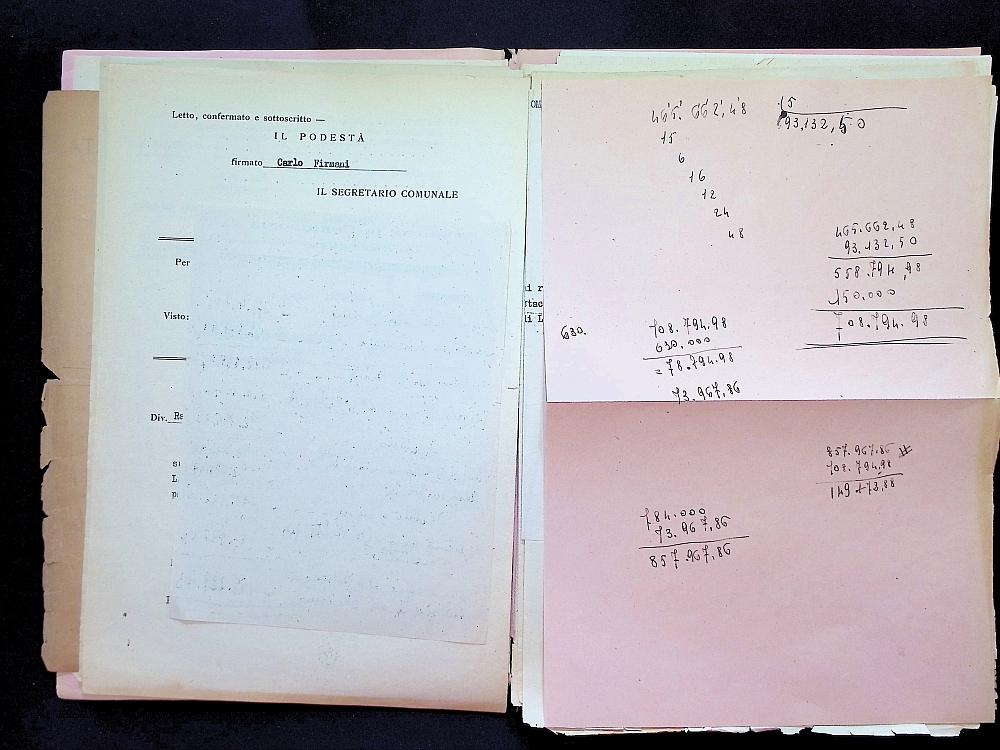 Letto, confermato e sottoscritto —
IL PODESTÀ
firmato Carlo Firmani
IL SEGRETARIO COMUNALE
Per
Visto:
Div. Ra
L
OM
i r
tac
i L
465.662,48 15
93,132,50
15
6
16
12
24
48
465.662,48
93.132,50
558.794,98
150.000
708.794.98
630.
708.794.98
630.000
= 78.794.98
73.967,86
857.967,86
708.794,98
149173,88
784.000
73.967,86
857.967,86